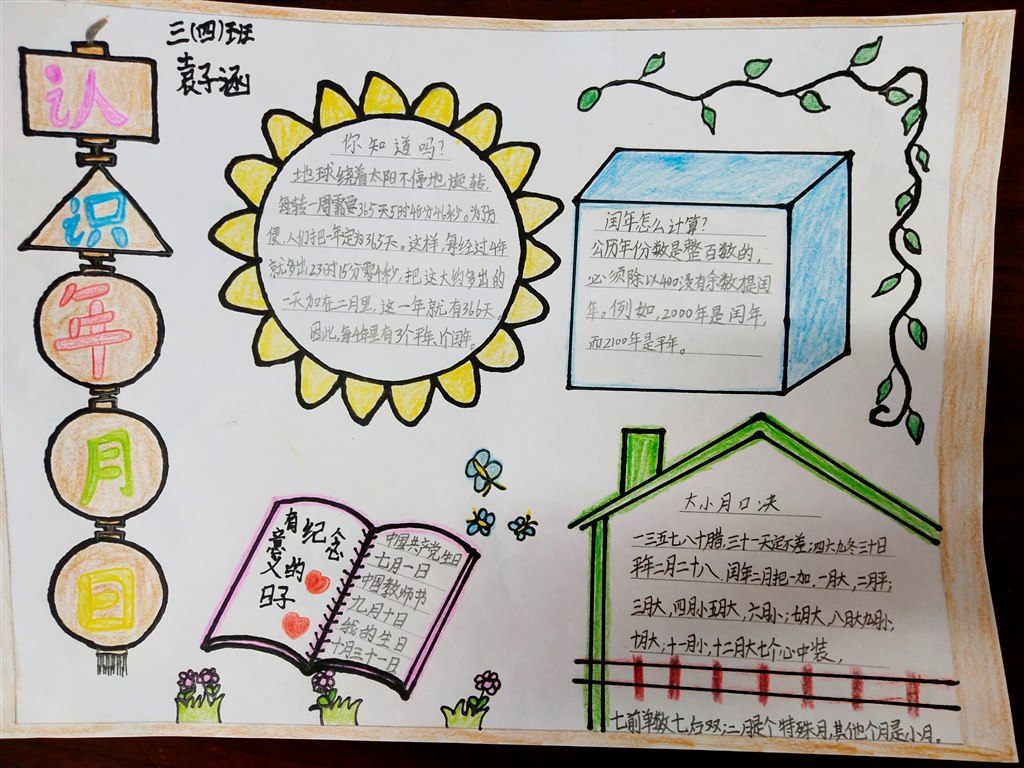 认
识
年
月
日
三(四)班
袁子涵
你知道吗?
地球绕着太阳不停地旋转.
每转一周需要365天5时48分46秒。为了方
便,人们把一年定为365天。这样,每经过4年
就多出23时15分零4秒,把这大约多出的
一天加在二月里,这一年就有366天。
因此,每4年里有3个平年,1个闰年。
闰年怎么计算?
公历年份数是整百数的,
必须除以400没有余数提闰
年。例如,2000年是闰年,
而2100年是平年。
有纪念
意义的
日子
中国共产党生日
七月一日
中国教师节
九月十日
我的生日
十月三十一日
大小月口决
一三五七八十腊,三十一天定不差;四六九冬三十日
平年二月二十八、闰年二月把一加,一月大,二月平;
三月大,四月小五月大,六月小;七月大,八月大九月小;
十月大,十一月小,十二月大七个心中装,
七前单数七后双;二月是个特殊月,其他个月是小月。